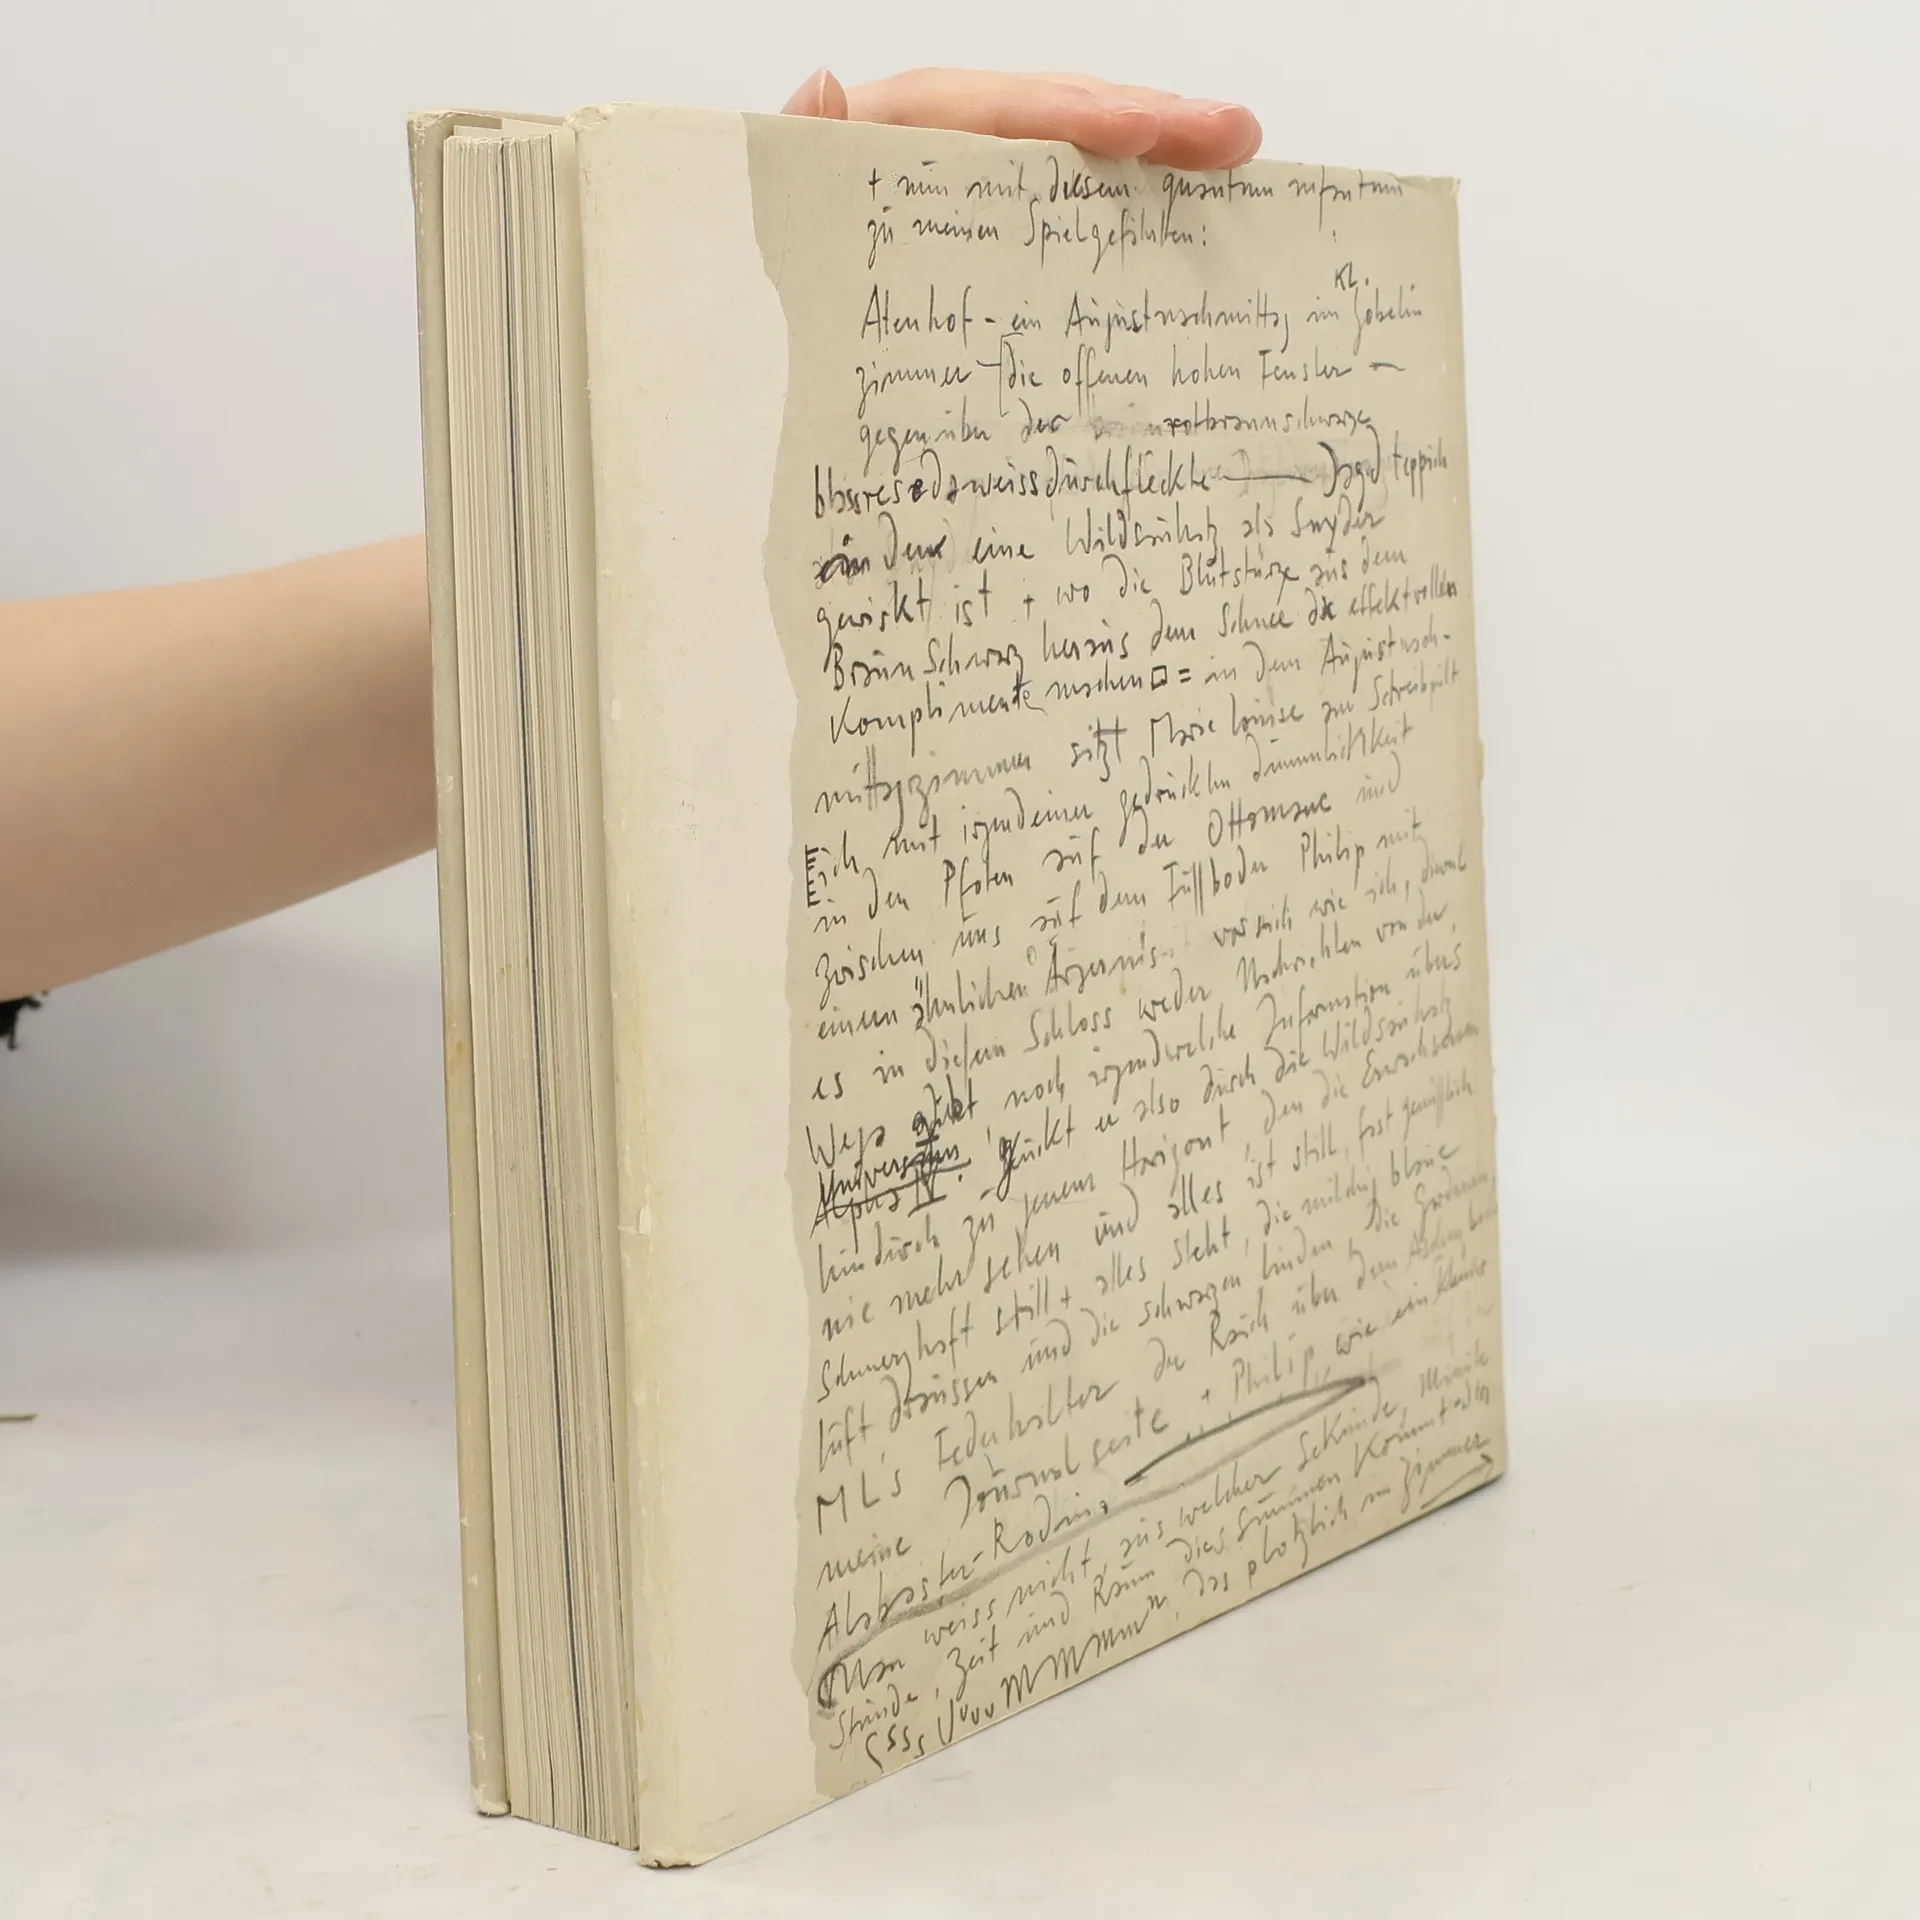 + nun mit diesem quantum infantum
zu meinen Spielgefährten:
Kl.
Atenhof - ein Augustnachmittag im Gobelin
zimmer - die offenen hohen Fenster -
gegenüber der rotbraunschwarze
blassresedaweissdurchfleckte Jagdteppich
in dem eine Wildsauhatz als Snyder
gewirkt ist + wo die Blutstürze aus dem
Braunschwarz heraus dem Schnee die effektvollen
Komplimente machen □ = in dem Augustnach-
mittagzimmer sitzt Marie Louise am Schreibpult
ich mit irgendeiner gedruckten Dümmlichkeit
in den Pfoten auf der Ottomane und
zwischen uns auf dem Fußboden Philip mit
einem ähnlichen Ärgernis was mich wie ich, dieweil
es in diesem Schloss weder Nachrichten von der
Wega gibt noch irgendwelche Information übers
Universum guckt er also durch die Wildsauhatz
Alpha IV.
hindurch zu jenem Horizont den die Erwachsenen
nie mehr sehen und alles ist still, fast
schmerzhaft still + alles steht, die milchig blaue
Luft draussen und die schwarzen Linden, die Gardinen,
ML's Federhalter der Rauch über dem
meine Journalseite + Philip, wie ein kleiner
Alabaster-Rodin,
Man weiss nicht, aus welcher Sekunde, Minute
Stunde, Zeit und Raum dies Summen kommt - das
Ssss Uuuu MMMmmm, das plötzlich im Zimmer